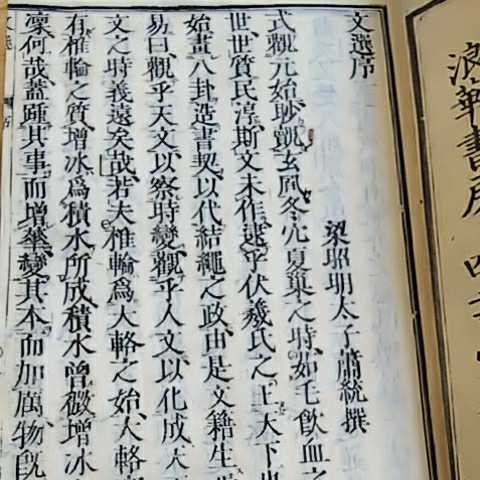 浪華書房
文選序
梁昭明太子蕭統撰
式觀元始眇覿玄風冬穴夏巢之時茹毛飲血之
世世質民淳斯文未作逮乎伏羲氏之王天下也
始畫八卦造書契以代結繩之政由是文籍生焉
易曰觀乎天文以察時變觀乎人文以化成天
文之時義遠矣哉若夫椎輪爲大輅之始大輅
有椎輪之質增冰爲積水所成積水曾微增冰
凜何哉蓋踵其事而增華變其本而加厲物既